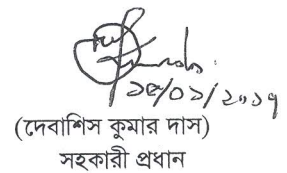 ১৫/০১/২০১৭
(দেবাশিস কুমার দাস)
সহকারী প্রধান